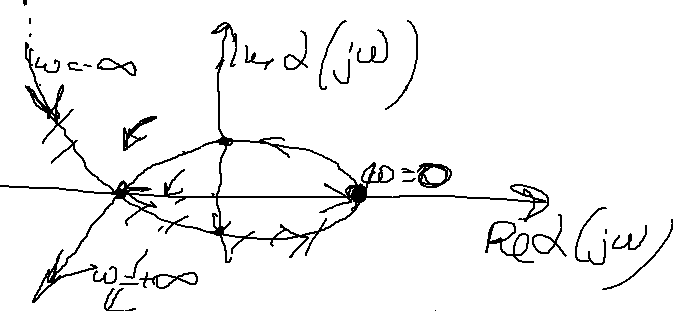 Im α(jω)
ω=-∞
ω=0
Re α(jω)
ω=+∞